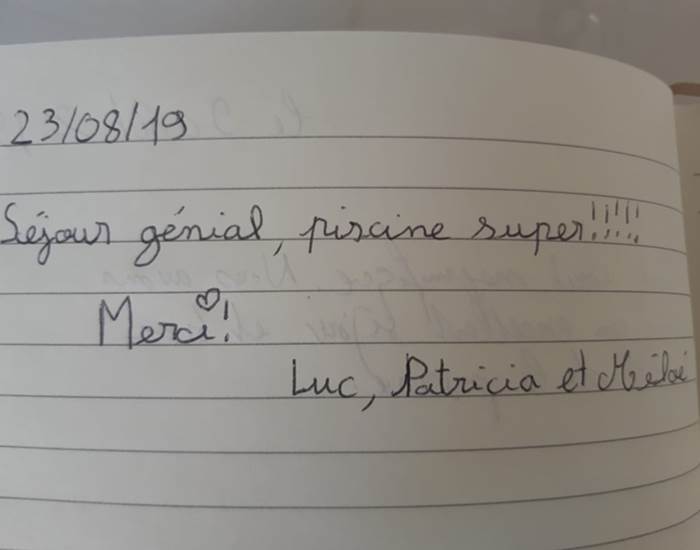 23/08/19
Séjour génial, piscine super!!!!!
Merci!
Luc, Patricia et Méloé